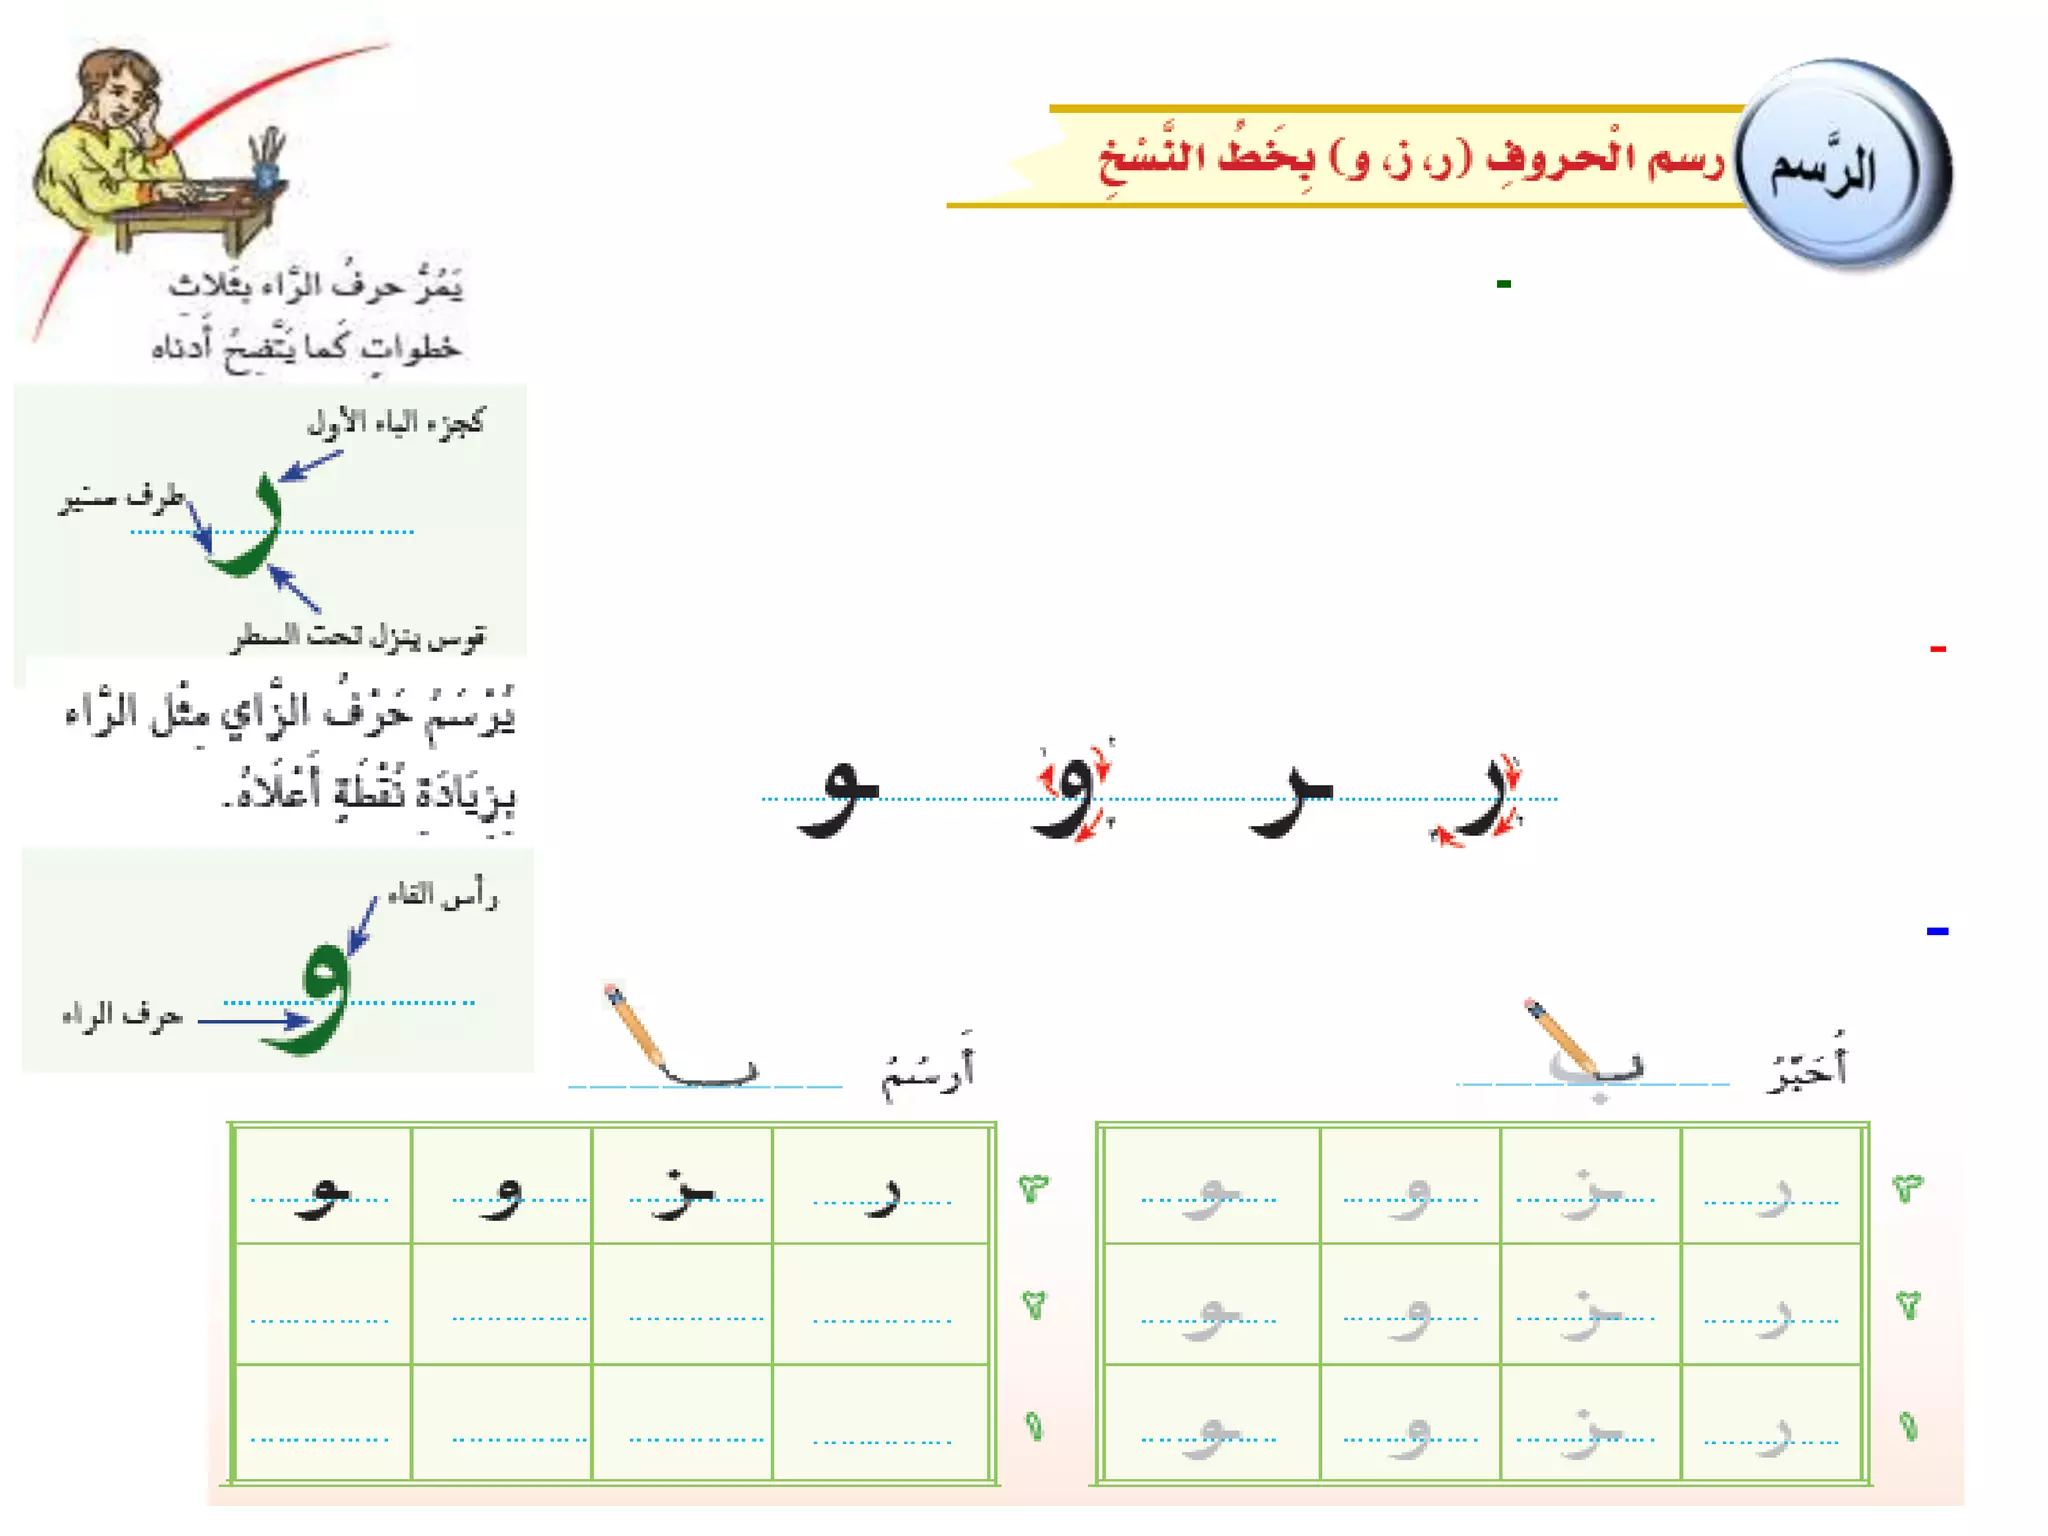 الرَّسم
رسم الْحروفِ (ر، ز، و) بِخَطِّ النَّسْخِ
يَمُرُّ حرفُ الرَّاء بثَلاثِ
خطواتٍ كَما يَتَّضِحُ أَدناه
كجزء الباء الأول
طرف مستير
ر
قوس ينزل تحت السطر
يُرْسَمُ حَرْفُ الزَّاي مِثْل الرَّاء
بِزِيَادَةِ نُقْطَةٍ أَعْلَاهُ.
ر ـر و ـو
رأس الفاء
و
حرف الراء
أُحَبِّرُ
ب
أَرسُمُ
٣ ر ـز و ـو
٢ ر ـز و ـو
١ ر ـز و ـو
٣ ر ـز و ـو
٢
١